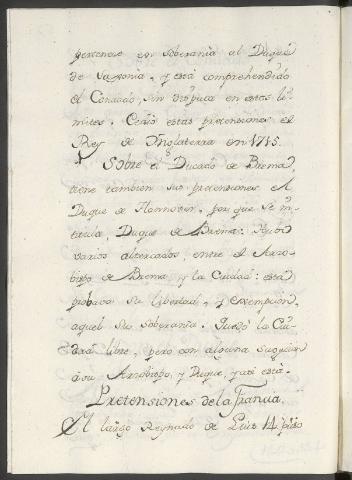 pertenece en soberania al Duque
de Saxonia, y está comprehendido
el Condado, sin disputa en estos lí-
mites. Cedió estas pretensiones el
Rey de Ynglaterra en 1715.
Sobre el Ducado de Brema
tiene tambien sus pretensiones el
Duque de Hannover, por que se in-
titula, Duque de Brema: Hubo
varios altercados, entre el Arzo-
bispo de Brema, y la Ciudad: esta
probaba su libertad, y exempcion,
aquel su soberania. Quedó la Ciu-
dad libre, pero con alguna sugecion
a su Arzobispo, y Duque, y asi está.
Pretensiones de la Francia.
El largo Reynado de Luis 14 hizo